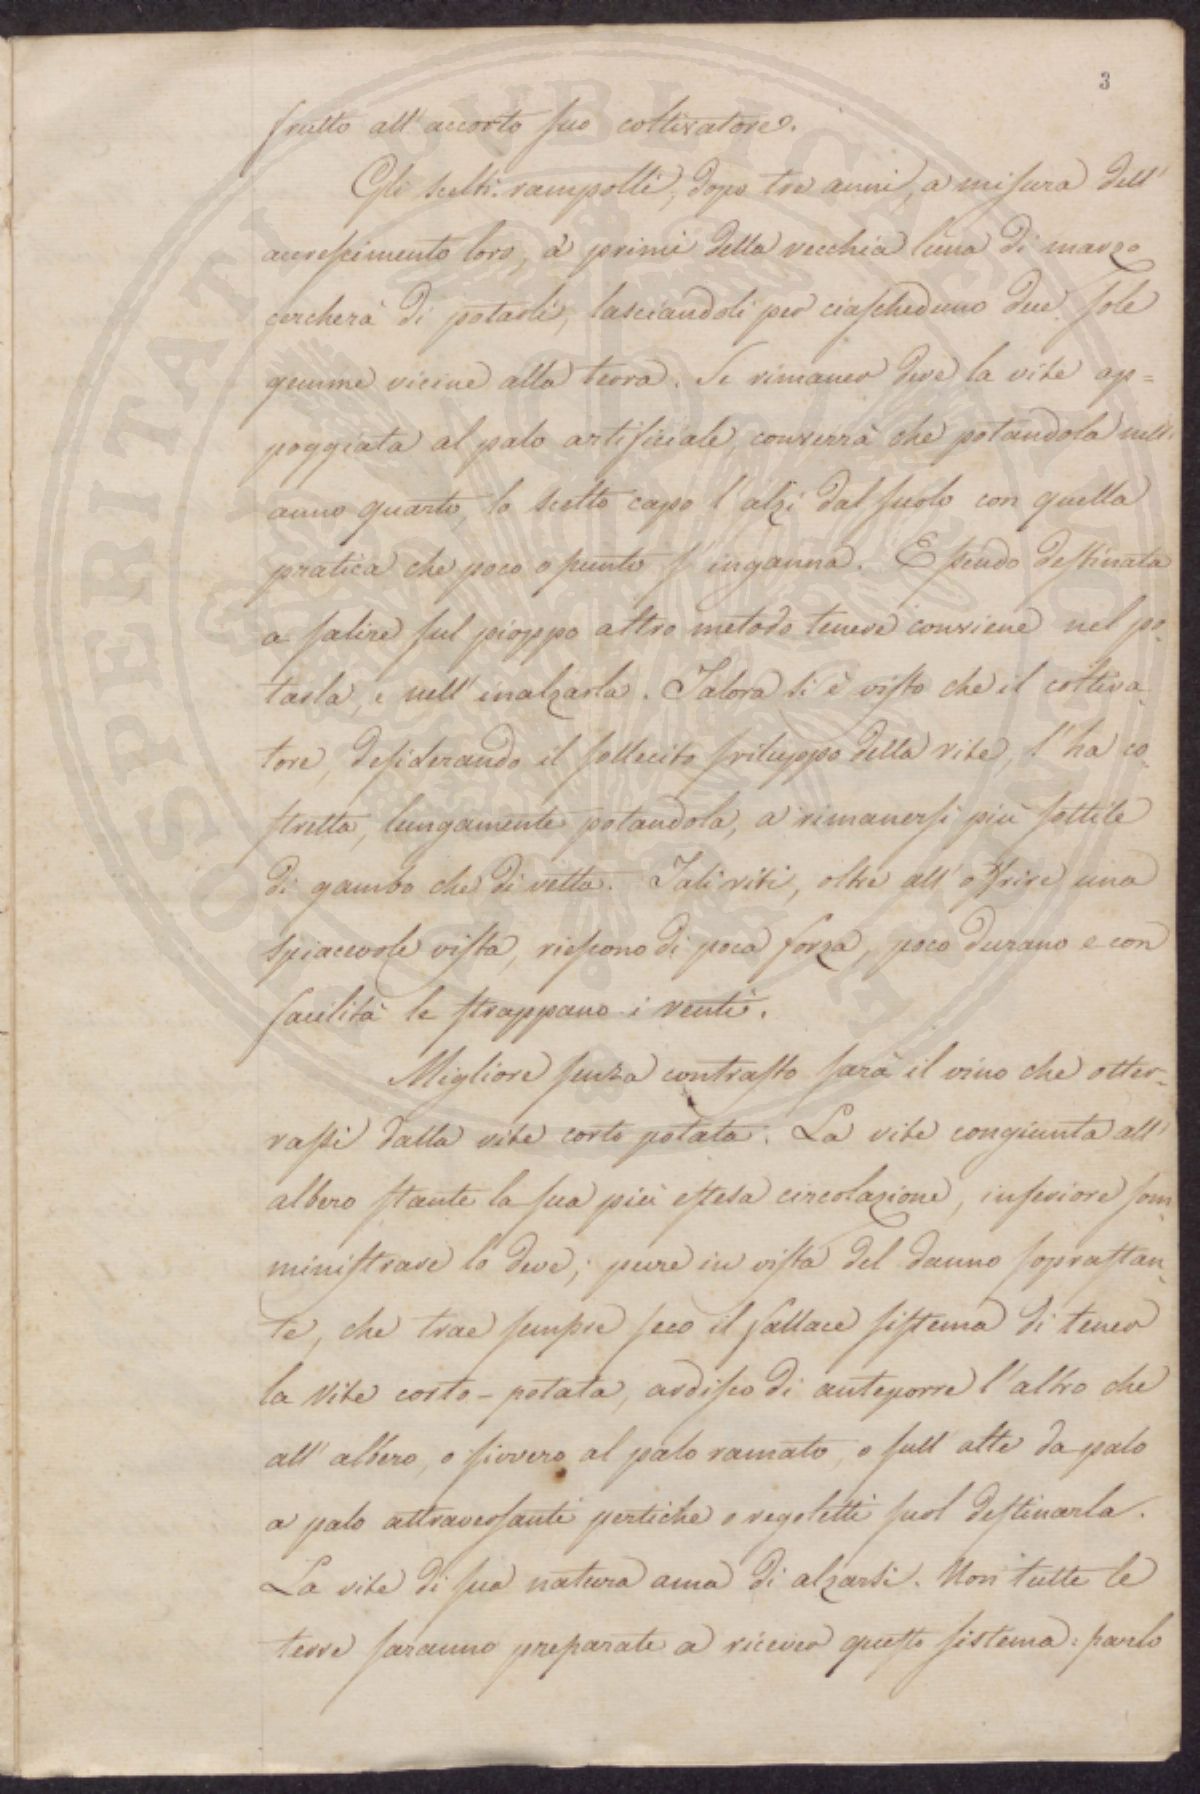 3
frutto all'accorto suo coltivatore.
Gli scelti rampolli, dopo tre anni, a misura dell'
accrescimento loro, a' primi della vecchia luna di marzo
cercherà di potarli, lasciandoli per ciascheduno due sole
gemme vicine alla terra. Se rimaner deve la vite ap=
poggiata al palo artificiale, converrà che potandola nell'
anno quarto, lo scelto capo l'alzi dal suolo con quella
pratica che poco o punto s'inganna. Essendo destinata
a salire sul pioppo altro metodo tenere conviene nel po-
tarla, e nell'inalzarla. Talora si è visto che il coltiva-
tore, desiderando il sollecito sviluppo della vite, l'ha co-
stretta, lungamente potandola, a rimanersi più sottile
di gambo che di vetta. Tali viti, oltre all'offrire una
spiacevole vista, riescono di poca forza, poco durano e con
facilità le strappano i venti.
Migliore senza contrasto sarà il vino che otter-
rassi dalla vite corto potata. La vite congiunta all'
albero stante la sua più estesa circolazione, inferiore som-
ministrare lo deve; pure in vista del danno soprastan-
te, che trae sempre seco il fallace sistema di tener
la vite corto-potata, ardisco di anteporre l'altro che
all'albero, o sivvero al palo ramato, o sull'alte da palo
a palo attraversanti pertiche o regoletti suol destinarla.
La vite di sua natura ama di alzarsi. Non tutte le
terre saranno preparate a ricever questo sistema: parlo
SOSPERITATI PUBLICAE